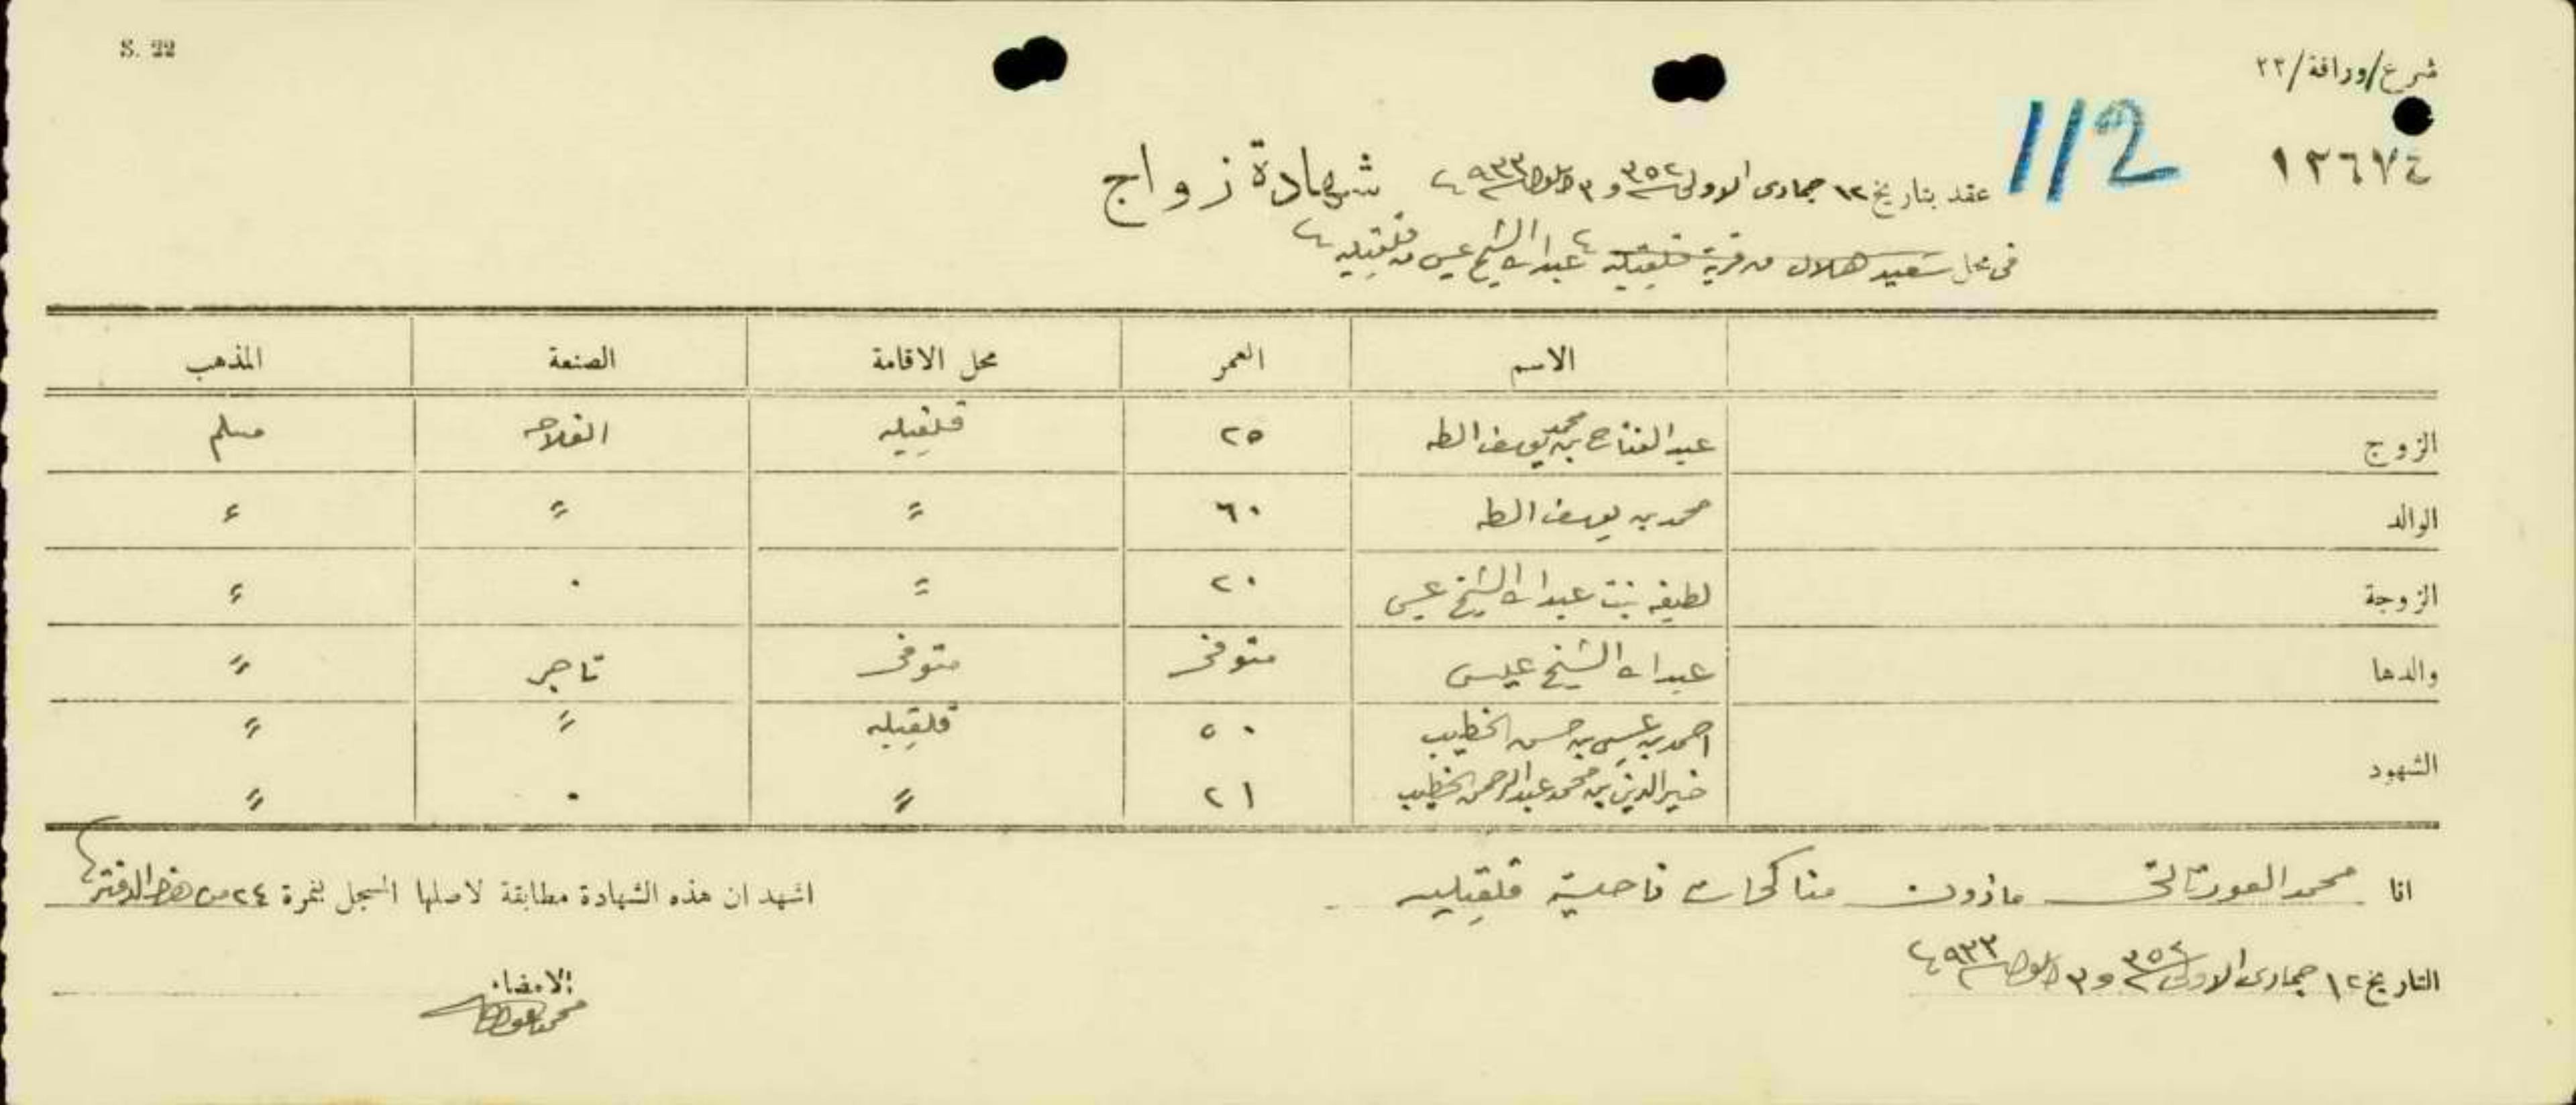 S. 22
شرع/وراقة/٢٢
١٢٦٧٤
112
شهادة زواج
عقد بتاريخ ١٢ جمادى الاولى ٣٥٢ و ٣ ٩٣٣
في محل سعيد هلال من قرية قلقيليه عبدالله الشيخ عيسى من قلقيليه
الاسم العمر محل الاقامة الصنعة المذهب
الزوج عبد الفتاح بن محمد يوسف الطه ٢٥ قلقيليه الفلاحه مسلم
الوالد محمد بن يوسف الطه ٦٠ " " "
الزوجة لطيفه بنت عبدالله الشيخ عيسى ٢٠ " ٠ "
والدها عبدالله الشيخ عيسى متوفى متوفى تاجر "
الشهود احمد بن عيسى بن حسن الخطيب ٥٠ قلقيليه " "
خير الدين بن محمد عبد الرحمن الخطيب ٢١ " ٠ "
انا محمد العورتاني ماذون مناكحات ناحية قلقيليه اشهد ان هذه الشهادة مطابقة لاصلها المسجل بنمرة ٢٤ من هذا الدفتر
التاريخ ١٢ جمادى الاولى ٣٥٢ و ٣ ٩٣٣
الامضاء